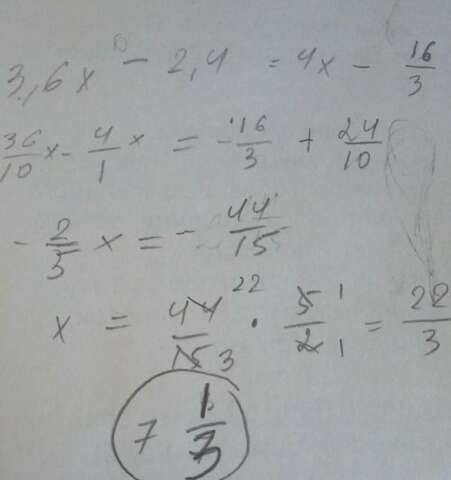 3,6x - 2,4 = 4x - 16/3
36/10 x - 4/1 x = -16/3 + 24/10
- 2/5 x = - 44/15
x = 44/15 22 3 · 5/2 1 1 = 22/3
7 1/3